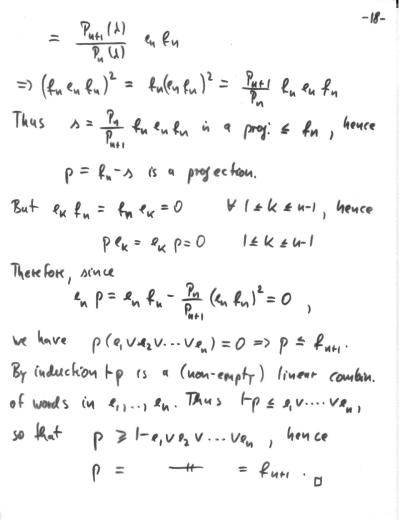 -18-
= P_{n+1}(λ) / P_n(λ) e_n f_n
=> (f_n e_n f_n)² = f_n(e_n f_n)² = P_{n+1}/P_n f_n e_n f_n
Thus s = P_n/P_{n+1} f_n e_n f_n is a proj. ≤ f_n, hence
p = f_n - s is a projection.
But e_k f_n = f_n e_k = 0 ∀ 1 ≤ k ≤ n-1, hence
p e_k = e_k p = 0 1 ≤ k ≤ n-1
Therefore, since
e_n p = e_n f_n - P_n/P_{n+1} (e_n f_n)² = 0 ,
we have p(e_1 ∨ e_2 ∨ ... ∨ e_n) = 0 => p ≤ f_{n+1}.
By induction 1-p is a (non-empty) linear combin.
of words in e_1, .., e_n. Thus 1-p ≤ e_1 ∨ .... ∨ e_n,
so that p ≥ 1 - e_1 ∨ e_2 ∨ ... ∨ e_n, hence
p = —"— = f_{n+1}. □